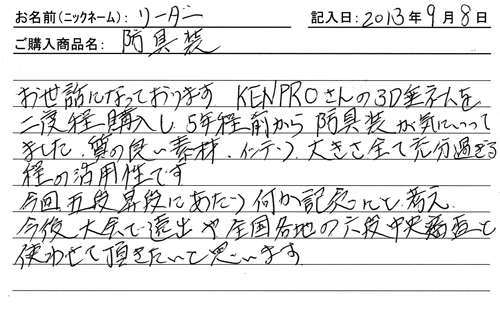 お名前(ニックネーム): リーダー 記入日: 2013年9月8日
ご購入商品名: 防具装
お世話になっております KENPROさんの3D垂ネームを
二度程購入し、5年程前から防具装が気にいって
ました。質の良い素材、インテリ、大きさ全て充分過ぎる
程の活用性です
今回五段昇段にあたり何か記念にと考え、
今後大会で遠出や全国各地の六段中央審査と
使わせて頂きたいと思います